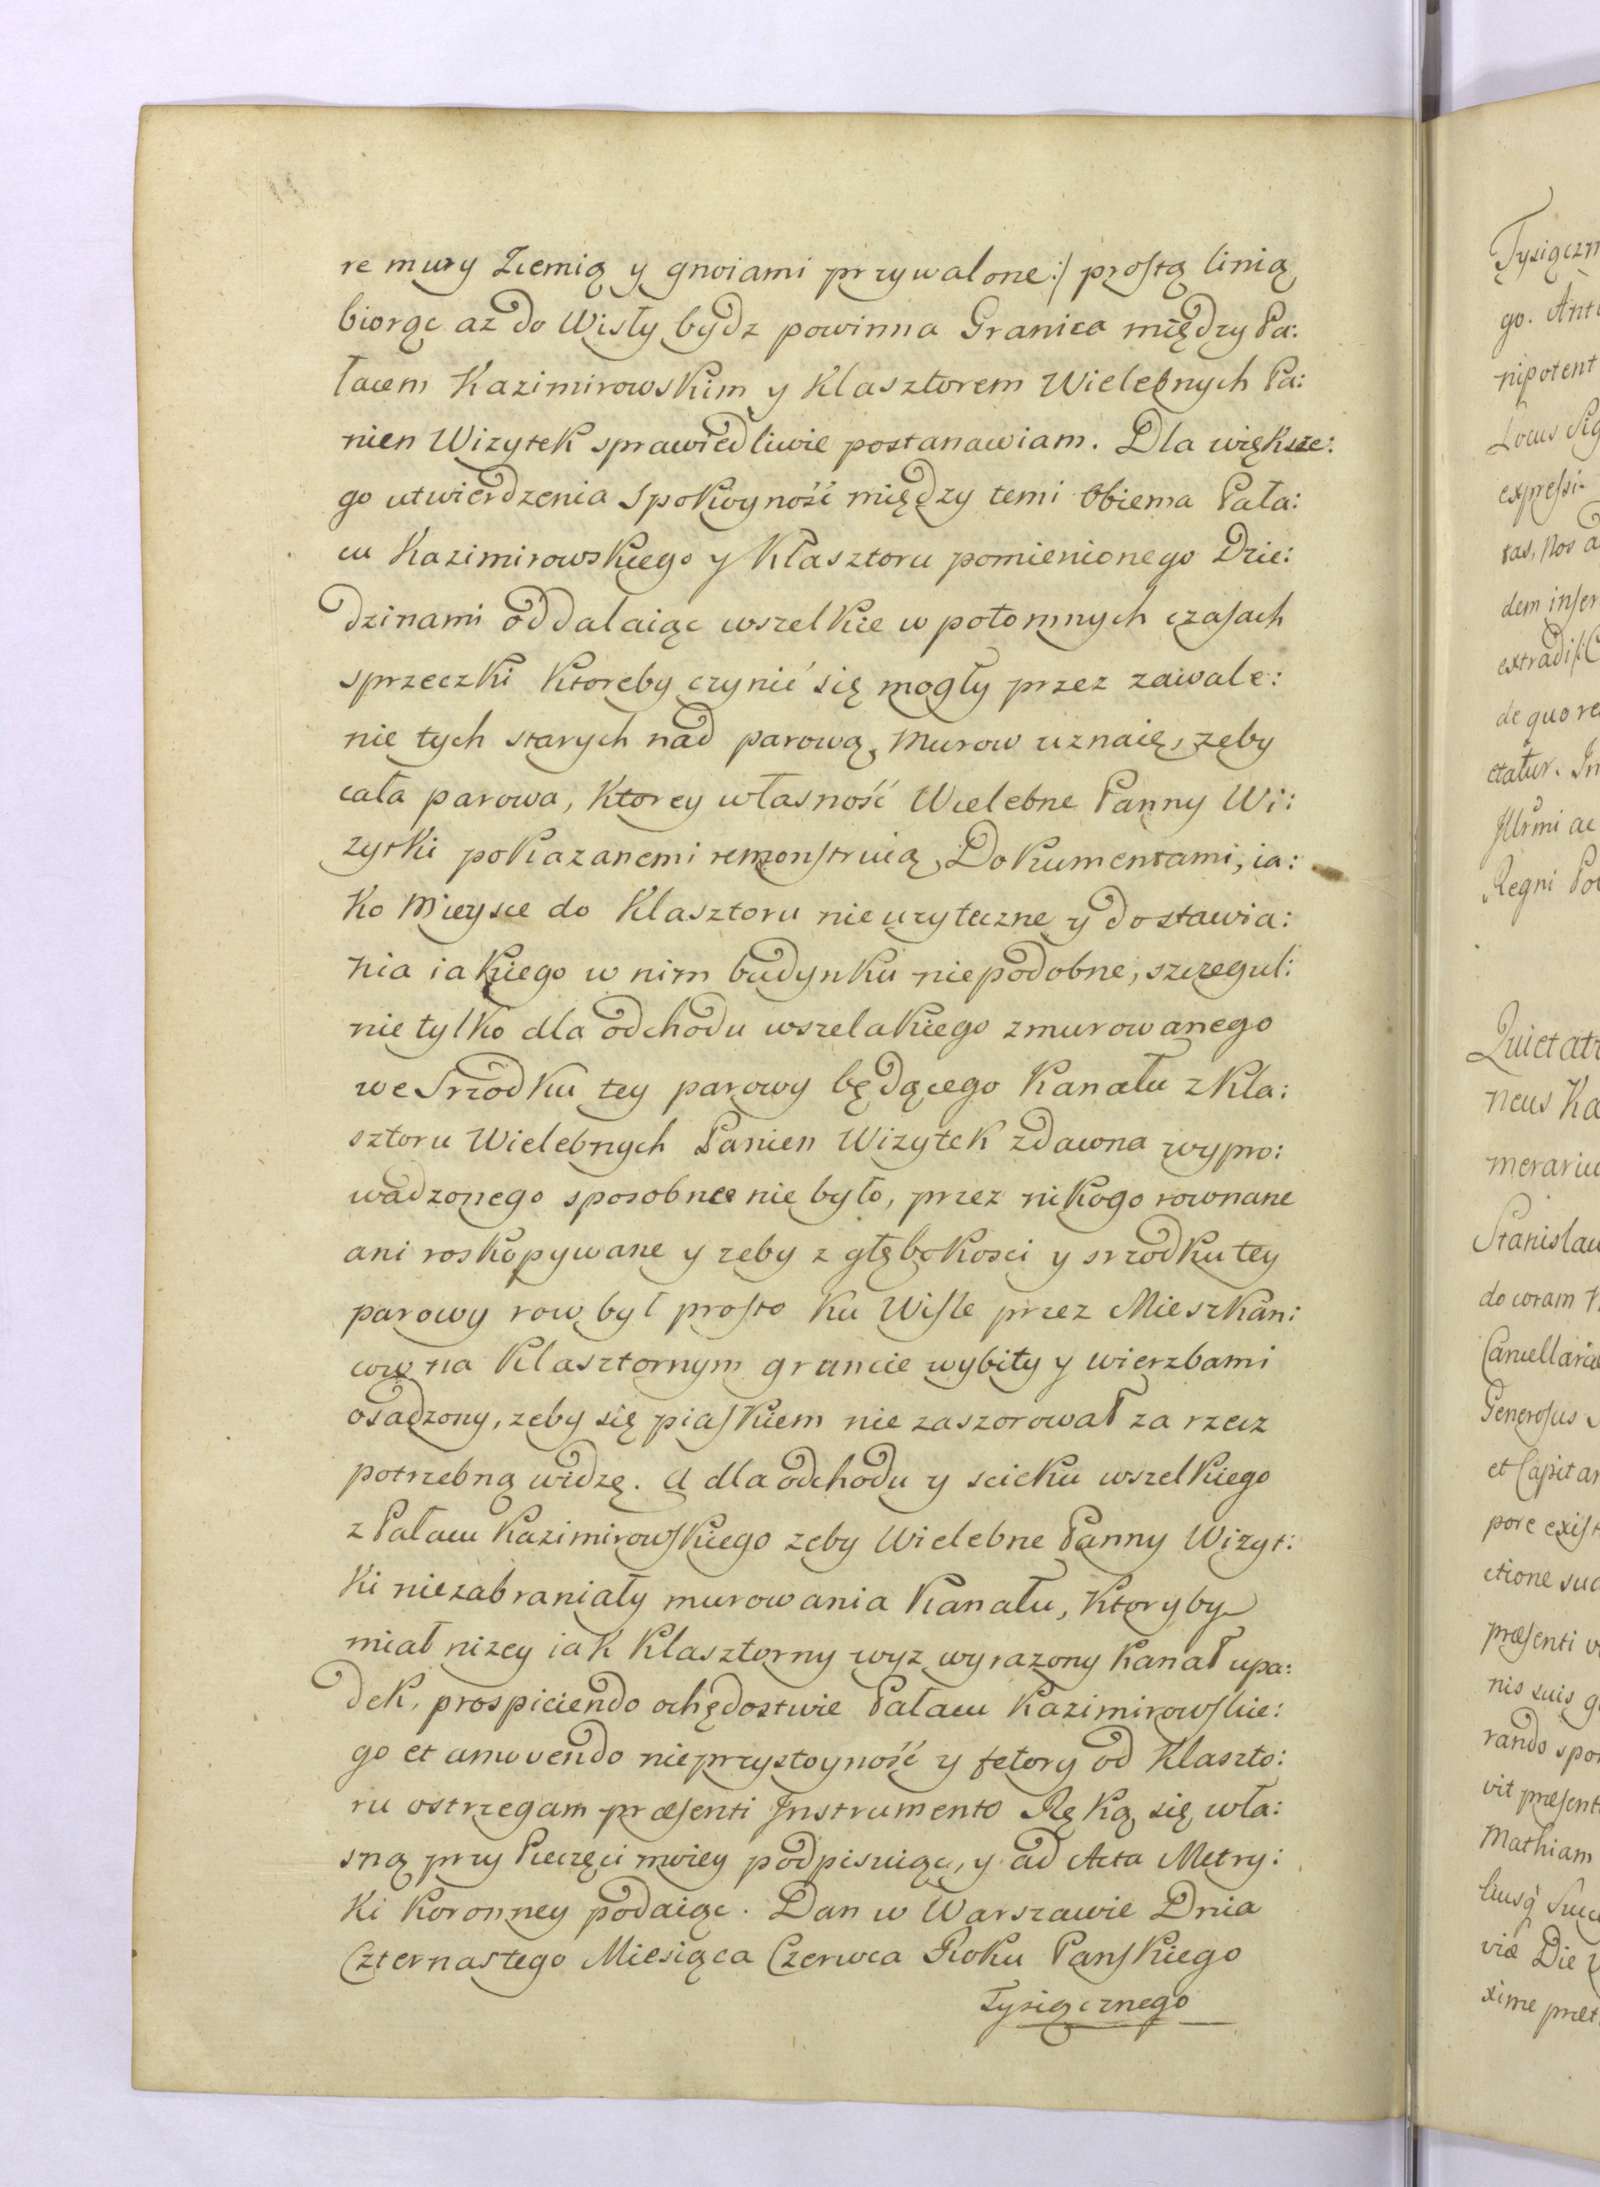 re mury Ziemią y gnoiami przywalone:/ prostą linią
biorąc az do Wisły bydz powinna Granica między Pa:
łacem Kazimirowskim y Klasztorem Wielebnych Pa:
nien Wizytek sprawiedliwie postanawiam. Dla większe:
go utwierdzenia Spokoyność między temi Obiema Pała:
cu Kazimirowskiego y Klasztoru pomienionego Dzie:
dzinami oddalaiąc wszelkie w potomnych czasach
sprzeczki Ktoreby czynić się mogły przez zawale:
nie tych starych nad parową Murow uznaię, zęby
cała parowa, Ktorey własność Wielebne Panny Wi:
zytki pokazanemi remonstruią Dokumentami, ia:
ko Mieysce do Klasztoru nieuzyteczne y do stawia:
nia iakiego w nim budynku niepodobne, szczegul:
nie tylko dla odchodu wszelakiego zmurowanego
we Srzodku tey parowy będącego Kanału z Kla:
sztoru Wielebnych Panien Wizytek zdawna wypro:
wadzonego sposobne nie było, przez nikogo rownane
ani roskopywane y zeby z głębokosci y srzodku tey
parowy row był prosto ku Wisle przez Mieszkan:
cow na Klasztornym gruncie wybity y wierzbami
osadzony, zeby się piaskiem nie zaszorował za rzecz
potrzebną widzę. A dla odchodu y scieku wszelkiego
z Pałacu Kazimirowskiego zeby Wielebne Panny Wizyt:
ki niezabraniały murowania Kanału, Ktoryby
miał nizey iak Klasztorny wyz wyrazony kanał upa:
dek, prospiciendo ochędostwie Pałacu Kazimirowskie:
go et amovendo nieprzystoyność y fetory od Klaszto:
ru ostrzegam præsenti Instrumento Ręką się wła:
sną przy Pieczęci moiey podpisuiąc, y ad Acta Metry:
ki Koronney podaiąc. Dan w Warszawie Dnia
Czternastego Miesiąca Czerwca Roku Panskiego
Tysiącznego
go. Ant
nipotent
Locus Sig
expressi
ras, Nos a
dem inser
de quo re
ctatur. In
Regni Pol
Quietat
neus Ka
merariu
Stanislau
do coram
Cancellaria
Generosus
et Capitan
pore exist
ctione sua
præsenti
nis suis
rando
vit præsent
Mathiam
viæ Die